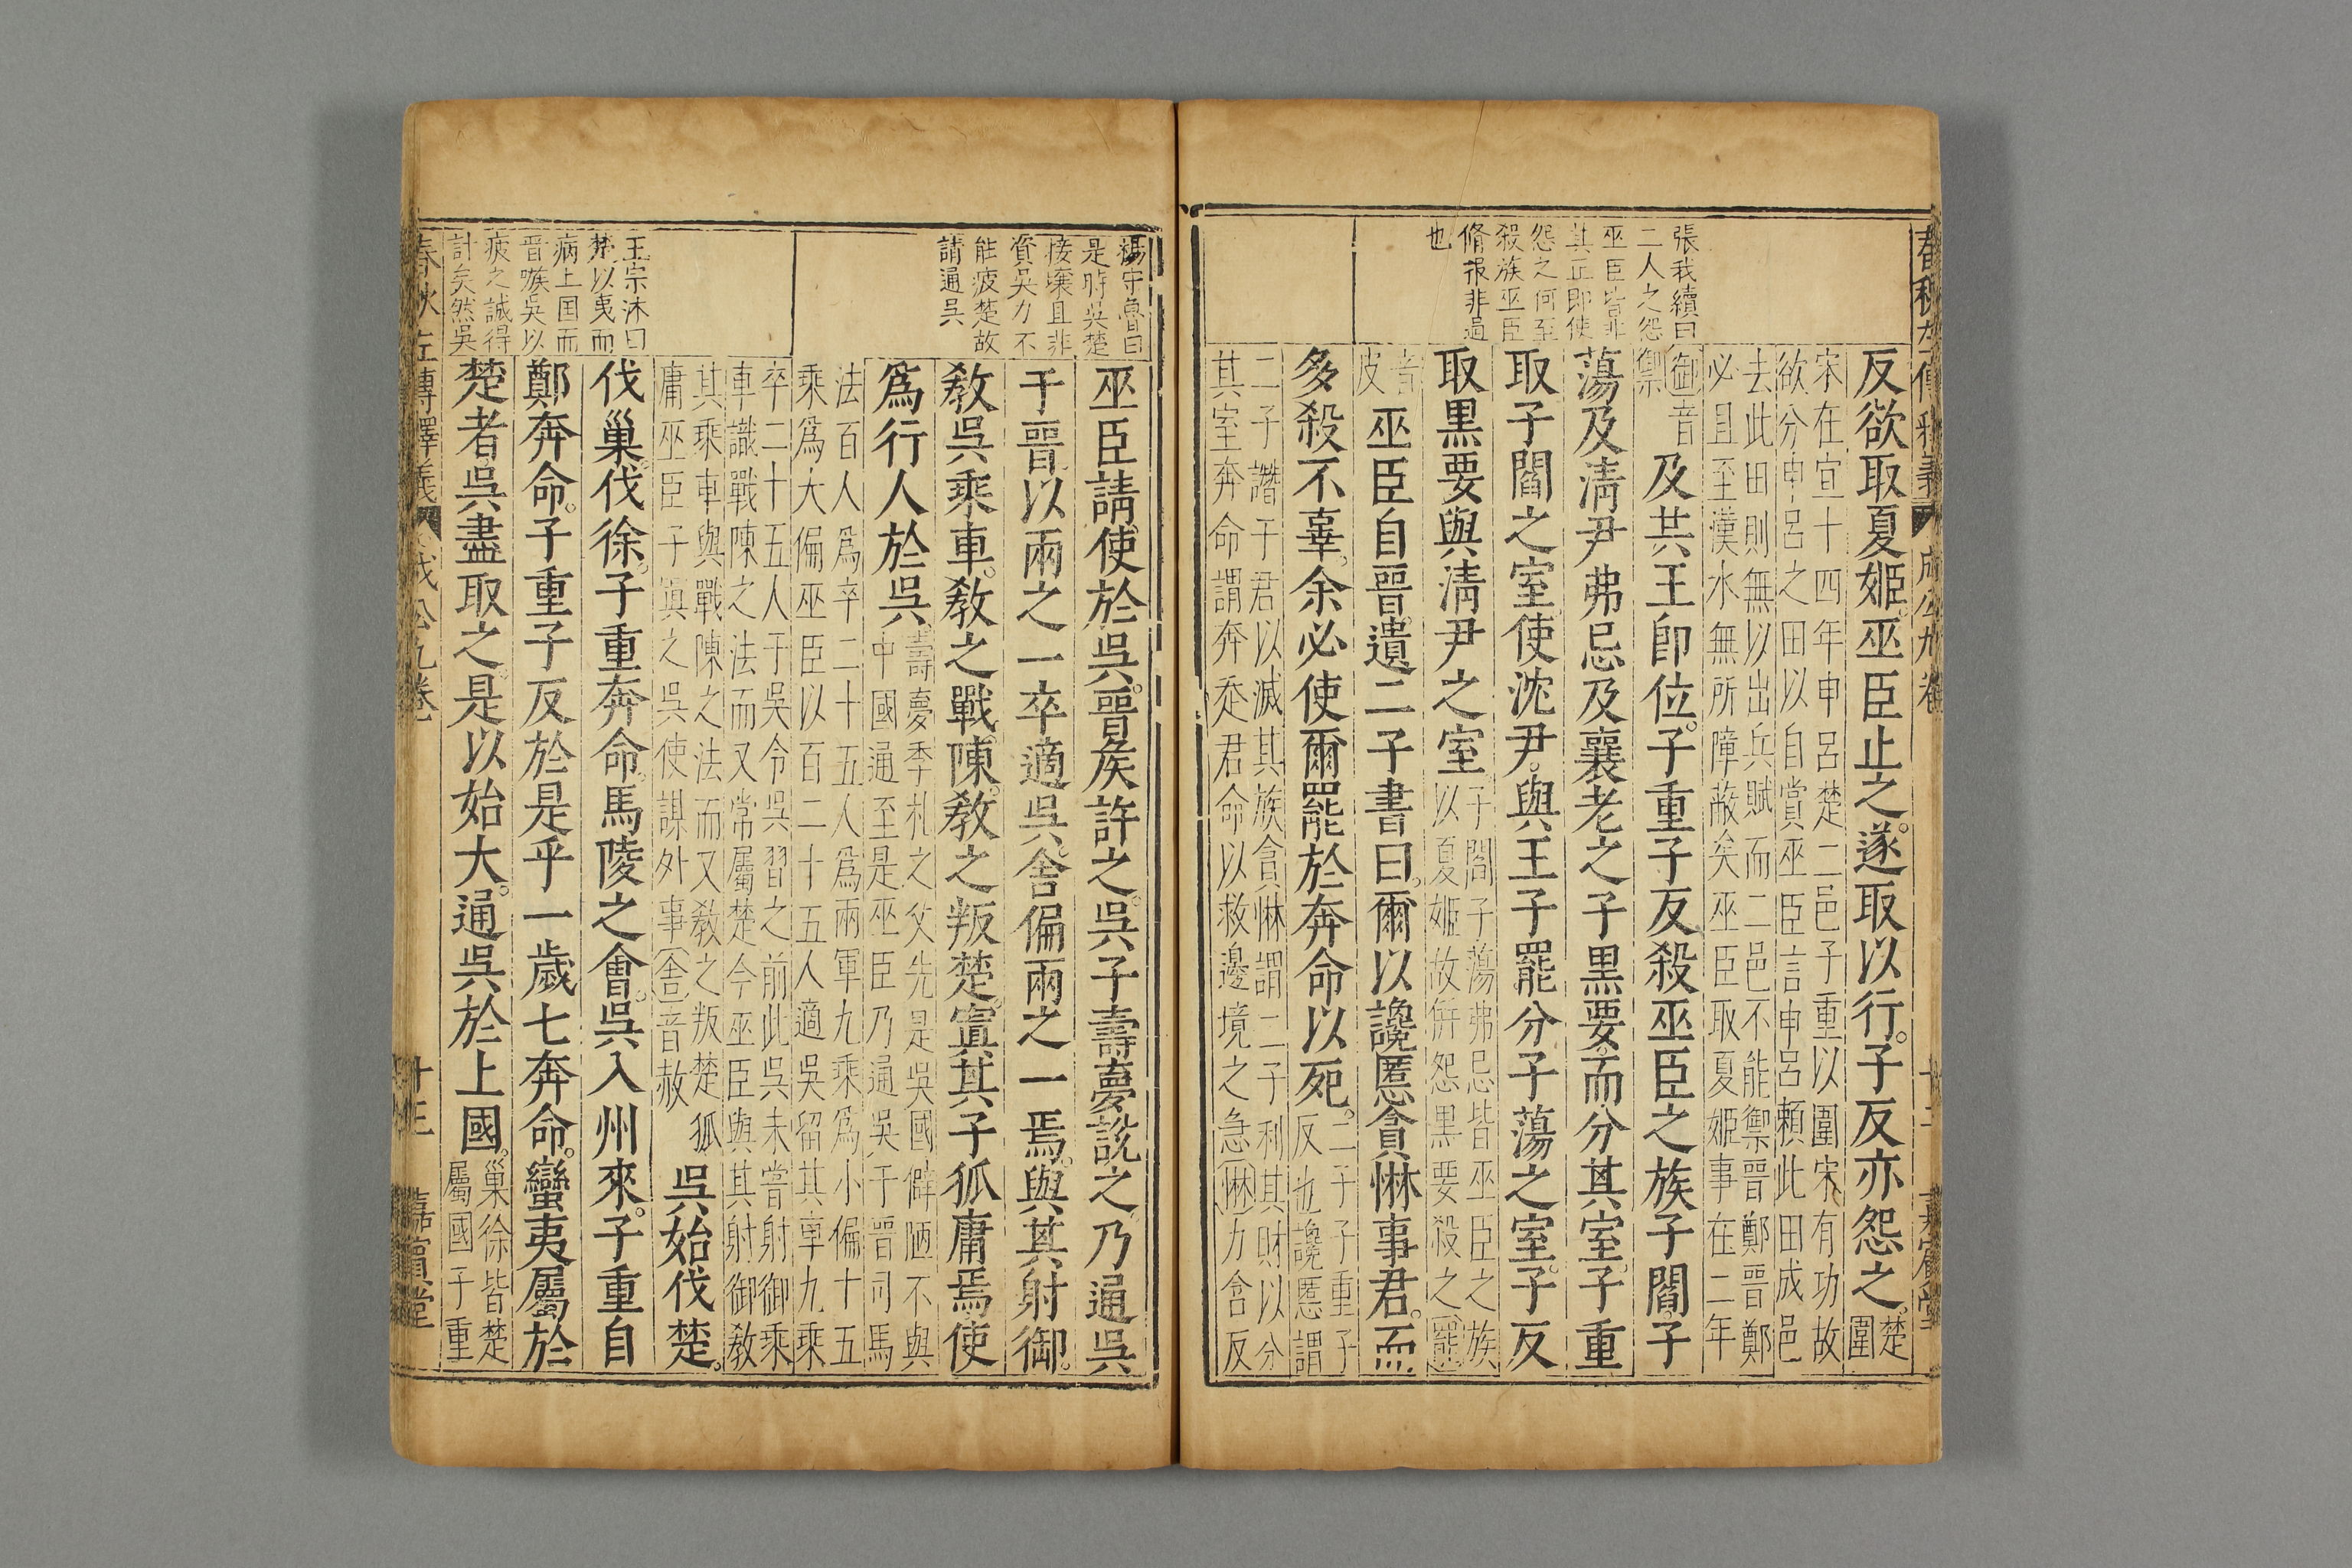 春秋左傳釋義 成公九卷 十二 嘉賓堂
張我續曰
二人之怨
巫臣皆非
其正即使
怨之何至
殺族巫臣
脩報非過
也
反欲取夏姬。巫臣止之。遂取以行。子反亦怨之。楚
圍
宋在宣十四年申呂楚二邑子重以圍宋有功故
欲分申呂之田以自賞巫臣言申呂賴此田成邑
去此田則無以出兵賦而二邑不能禦晉鄭晉鄭
必且至漢水無所障蔽矣巫臣取夏姬事在二年
御音
禦
及共王即位。子重子反殺巫臣之族子閻。子
蕩及清尹弗忌及襄老之子黑要。而分其室。子重
取子閻之室。使沈尹。與王子罷分子蕩之室。子反
取黑要與清尹之室
子閻子蕩弗忌皆巫臣之族
以夏姬故併怨黑要殺之罷
音
皮
巫臣自晉遺二子書曰。爾以讒慝貪惏事君。而
多殺不辜。余必使爾罷於奔命以死。
二子子重子
反也讒慝謂
二子譖于君以滅其族貪惏謂二子利其財以分
其室奔命謂奔走君命以救邊境之急惏力含反
楊守魯曰
是時吳楚
接壤且非
資吳力不
能疲楚故
請通吳
巫臣請使於吳。晉侯許之。吳子壽夢說之。乃通吳
于晉。以兩之一卒適吳。舍偏兩之一焉。與其射御。
教吳乘車。教之戰陳。教之叛楚。寘其子狐庸焉。使
爲行人於吳
壽夢季札之父先是吳國僻陋不與
中國通至是巫臣乃通吳于晉司馬
法百人爲卒二十五人爲兩軍九乘爲小偏十五
乘爲大偏巫臣以百二十五人適吳留其車九乘
卒二十五人于吳令吳習之前此吳未嘗射御乘
車識戰陳之法而又常屬楚今巫臣與其射御教
其乘車與戰陳之法而又教之叛楚狐
庸巫臣子寘之吳使謀外事舍音赦
吳始伐楚。
王宗沐曰
楚以夷而
病上国而
晉嗾吳以
疲之誠得
計矣然吳
伐巢。伐徐。子重奔命。馬陵之會。吳入州來。子重自
鄭奔命。子重子反於是乎一歲七奔命。蠻夷屬於
楚者。吳盡取之。是以始大。通吳於上國。
巢徐皆楚
屬國子重
春秋左傳釋義 成公九卷 十三 嘉賓堂